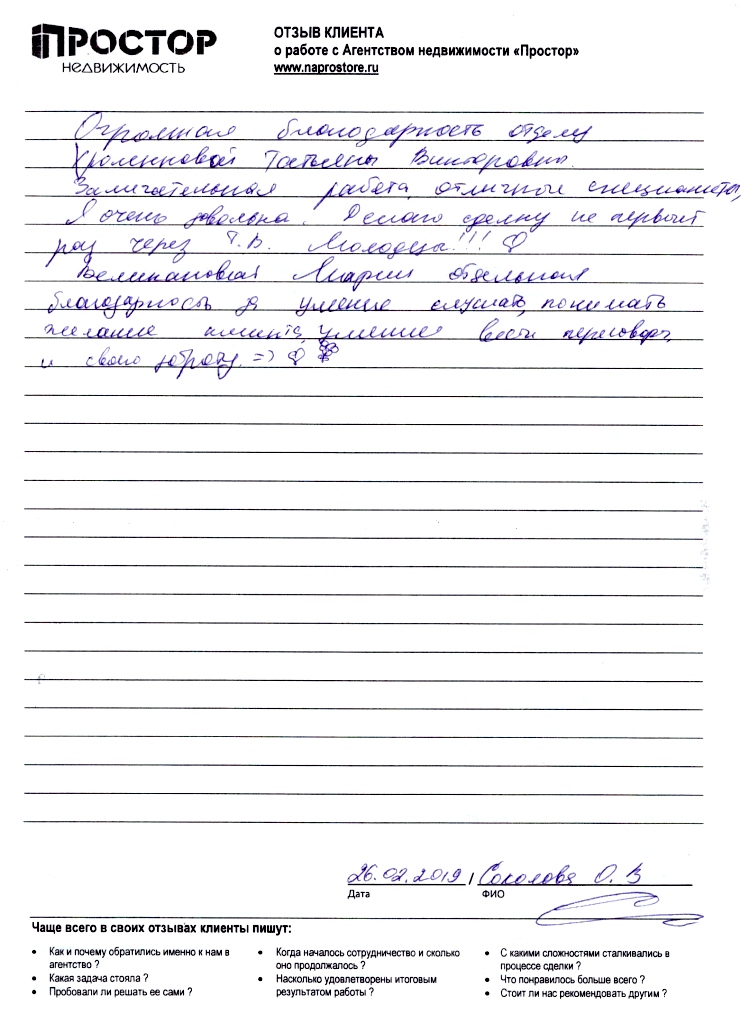 ПРОСТОР
НЕДВИЖИМОСТЬ
ОТЗЫВ КЛИЕНТА
о работе с Агентством недвижимости «Простор»
www.naprostore.ru
Огромная благодарность отделу
Хроленковой Татьяны Викторовны.
Замечательная работа, отличные специалисты,
Я очень довольна. Делаю сделку не первый
раз через Т.В. Молодцы!!!
Великановой Марии отдельная
благодарность за умение слушать, понимать
желание клиента, умение вести переговоры,
и свою доброту. =)
26.02.2019 / Соколова О. В
Дата ФИО
Чаще всего в своих отзывах клиенты пишут:
• Как и почему обратились именно к нам в
агентство ?
• Какая задача стояла ?
• Пробовали ли решать ее сами ?
• Когда началось сотрудничество и сколько
оно продолжалось ?
• Насколько удовлетворены итоговым
результатом работы ?
• С какими сложностями сталкивались в
процессе сделки ?
• Что понравилось больше всего ?
• Стоит ли нас рекомендовать другим ?